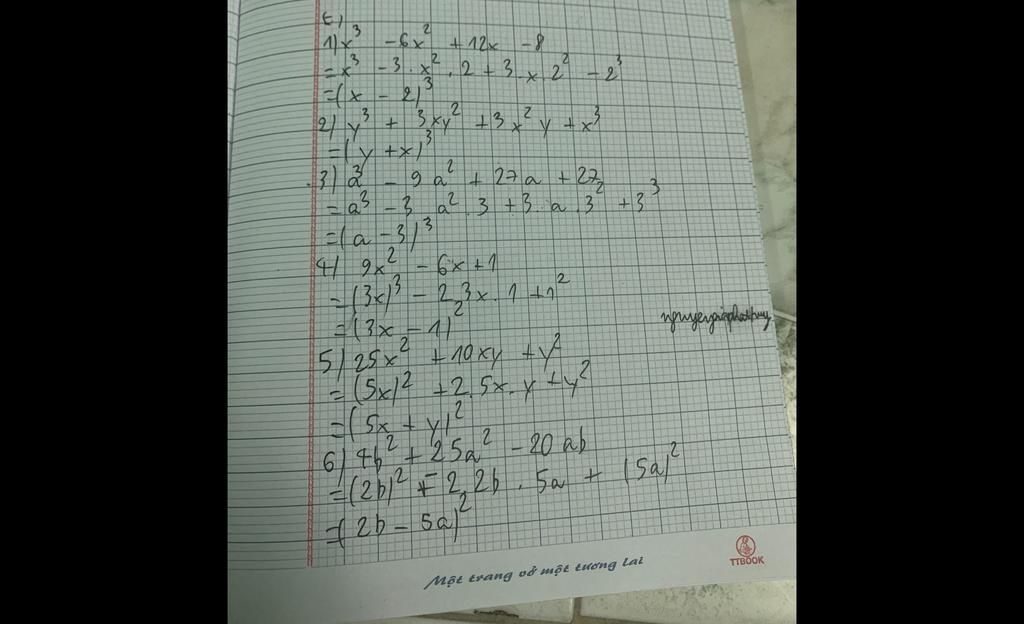 E)
1) x³ - 6x² + 12x - 8
= x³ - 3 . x² . 2 + 3 . x . 2² - 2³
= (x - 2)³
2) y³ + 3xy² + 3x²y + x³
= (y + x)³
3) a³ - 9a² + 27a + 27
= a³ - 3 a² . 3 + 3 . a . 3² + 3³
= (a - 3)³
4) 9x² - 6x + 1
= (3x)³ - 2.3x . 1 + 1²
= (3x - 1)²
5) 25x² + 10xy + y²
= (5x)² + 2.5x . y + y²
= (5x + y)²
6) 4b² + 25a² - 20ab
= (2b)² - 2.2b . 5a + (5a)²
= (2b - 5a)²
Một trang vở một tương lai
TTBOOK